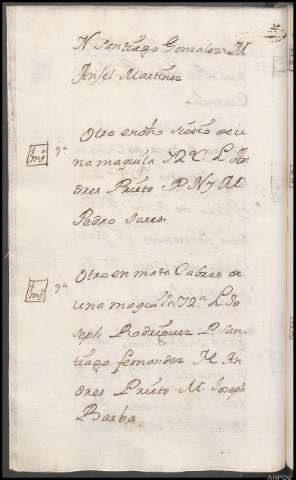 N Santiago Gonzalez M
Angel Martinez
Otro en dho sitio de u
na maquila 72 L An
dres Prieto P N y M
Pedro Jares
Otro en mata Cabras de
una maquilla 72 L Jo
seph Rodriguez P San
tiago fernandez M An
dres Prieto M Joseph
Barba
AHPOU